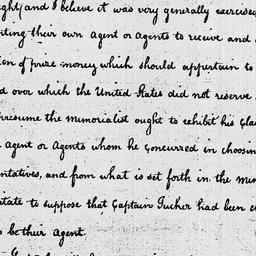 ght (and I believe it was very generally exercised
iting their own agent or agents to receive and
ion of prize money which should appertain to
d over which the United States did not reserve
presume the memorialist ought to exhibit his Cla
agent or Agents whom he concurred in choosin
entatives, and from what is set forth in the mem
itate to suppose that Captain Tucker had been c
o be their Agent.